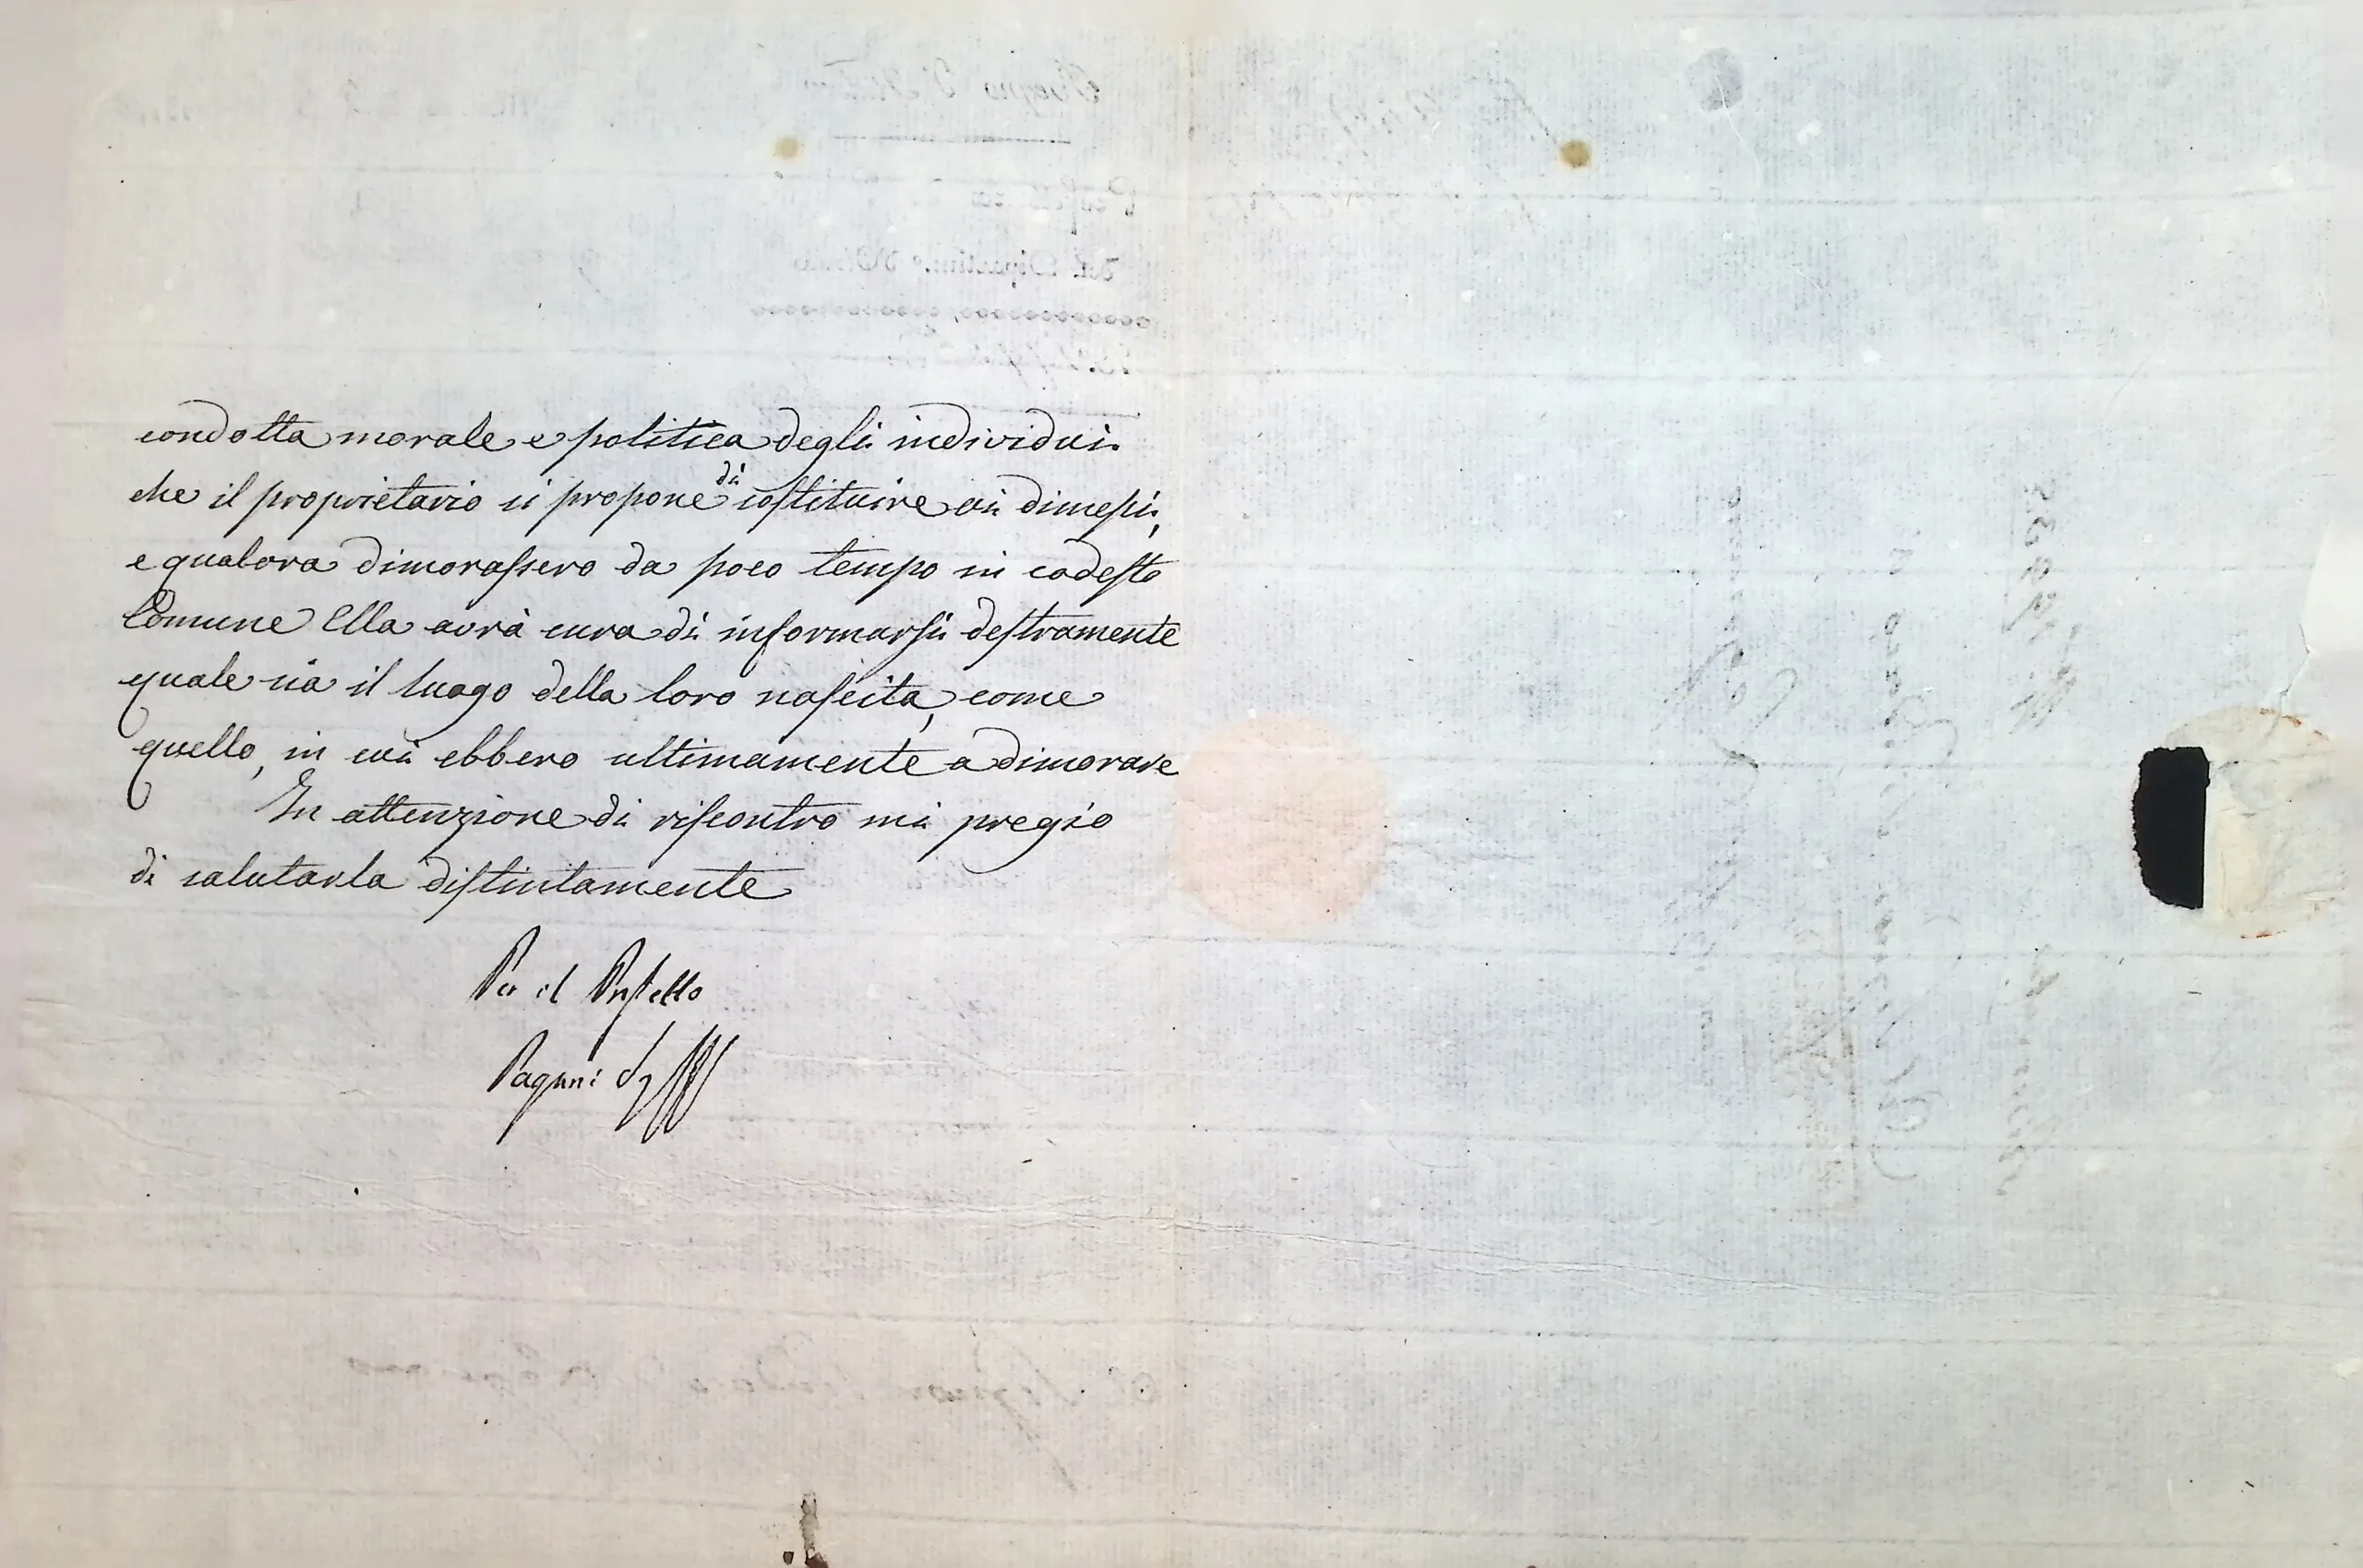 condotta morale e politica degli individui
che il proprietario si propone di sostituire ai dimessi,
e qualora dimorassero da poco tempo in codesto
Comune Ella avrà cura di informarsi destramente
quale sia il luogo della loro nascita, come
quello, in cui ebbero ultimamente a dimorare
In attenzione di riscontro mi pregio
di salutarla distintamente
Per il Prefetto
Pagani